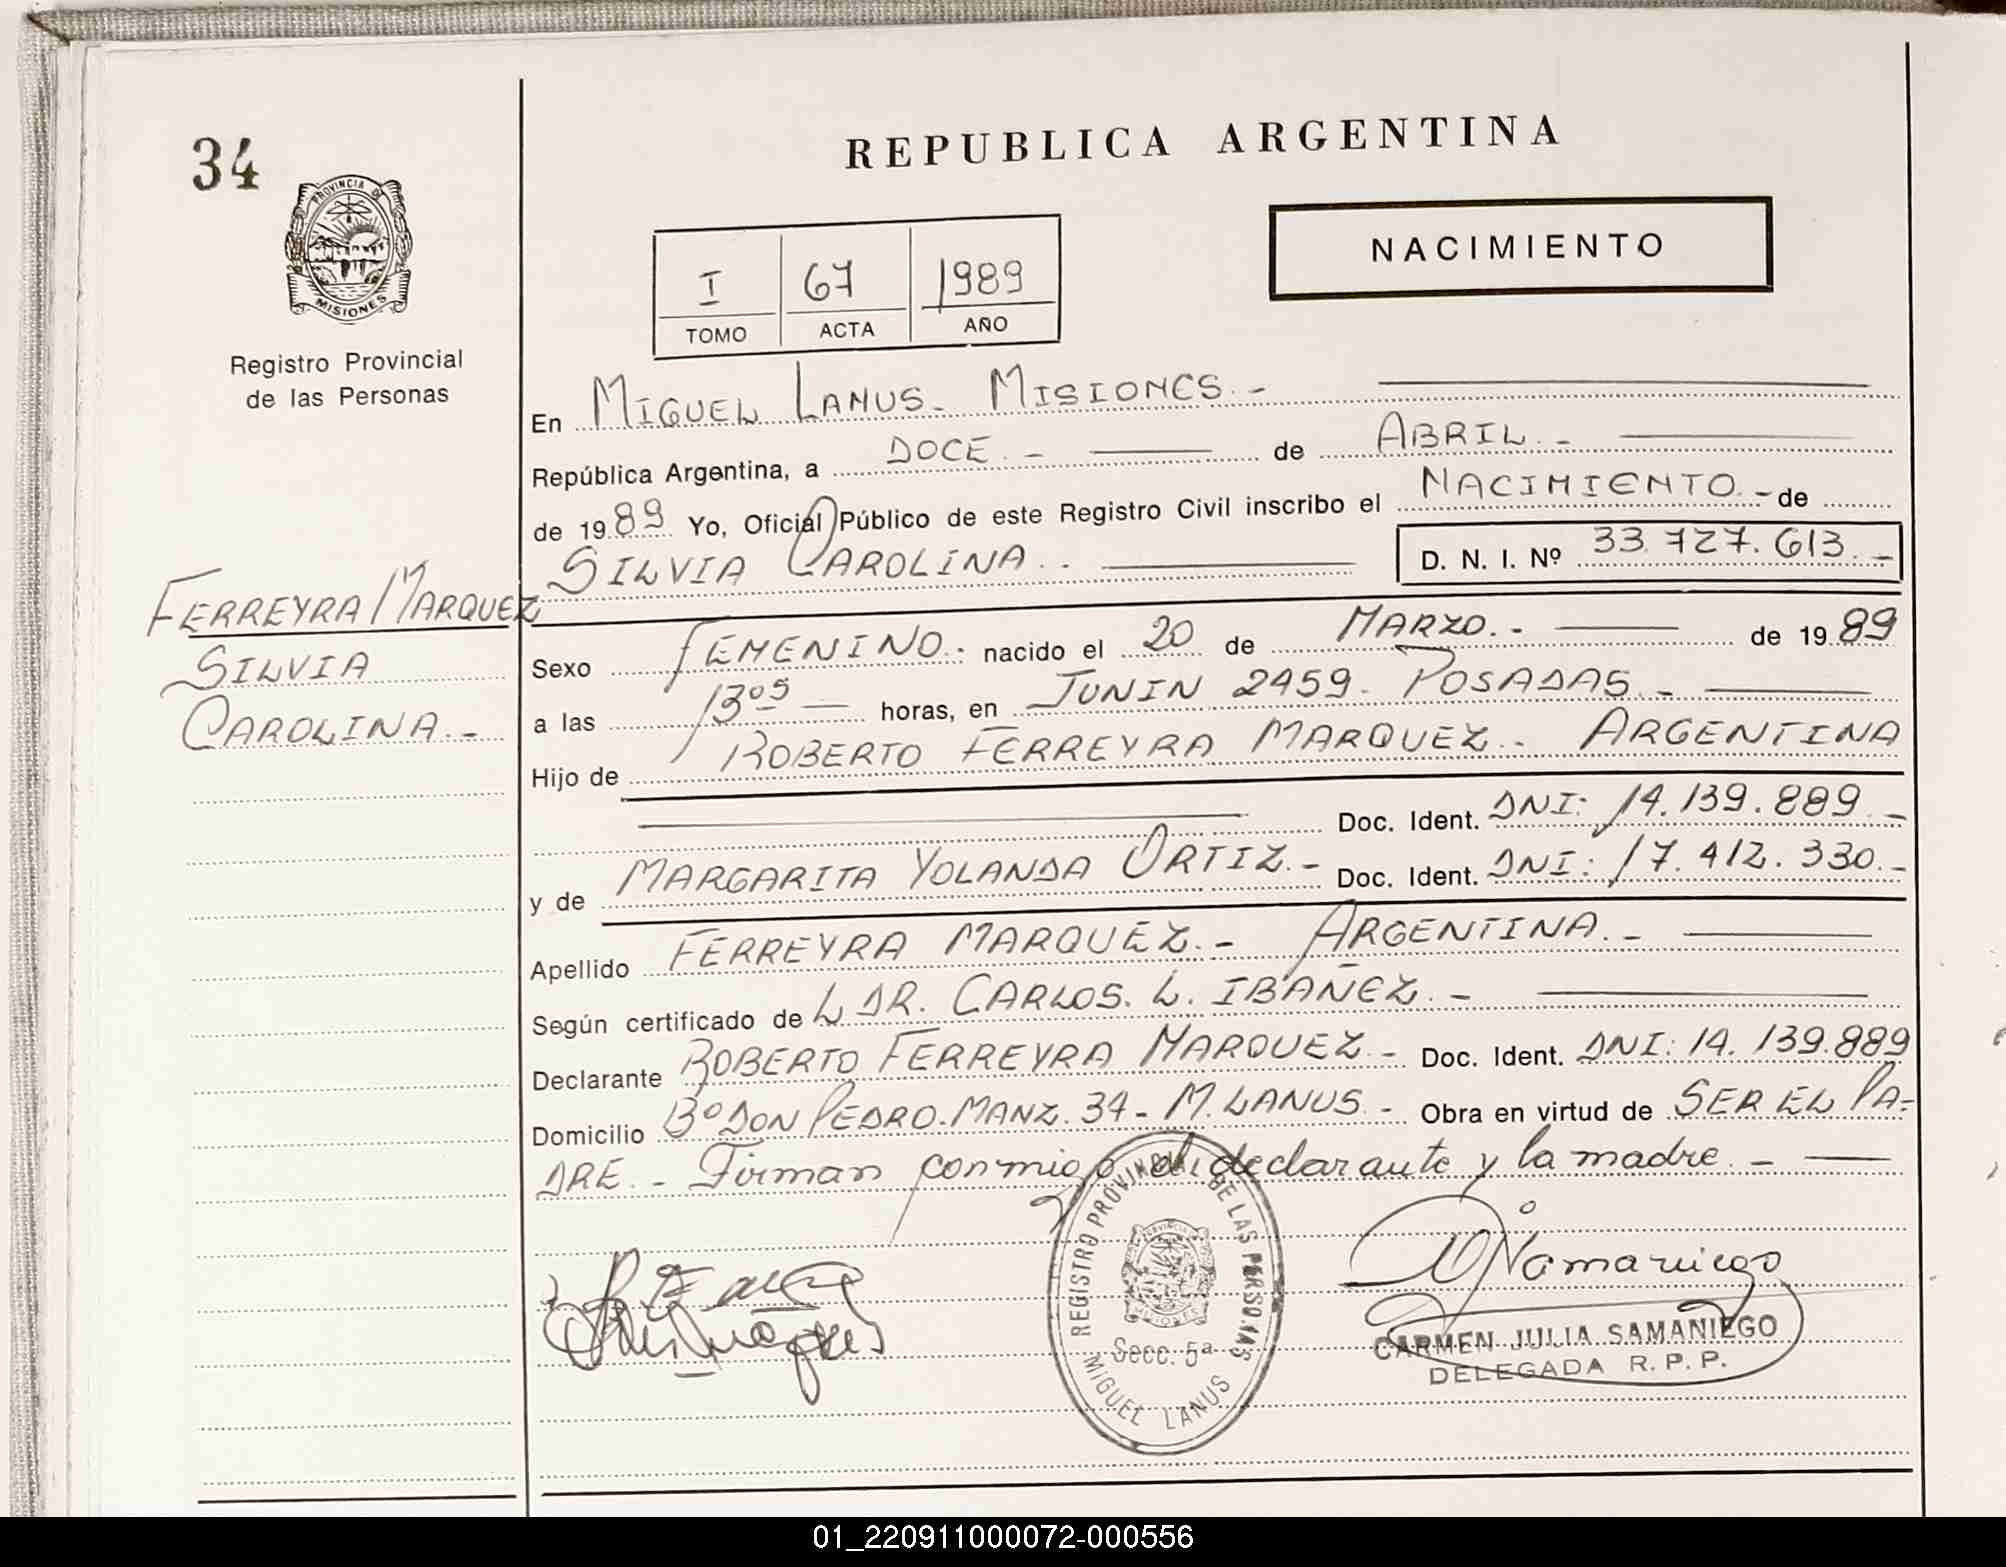 34
PROVINCIA DE
MISIONES
Registro Provincial
de las Personas
FERREYRA MARQUEZ
SILVIA
CAROLINA.-
REPUBLICA ARGENTINA
I 67 1989
TOMO ACTA AÑO
NACIMIENTO
En MIGUEL LANUS- MISIONES.-
República Argentina, a DOCE.- de ABRIL.-
de 1989 Yo, Oficial Público de este Registro Civil inscribo el NACIMIENTO.- de
SILVIA CAROLINA.. D. N. I. Nº 33.727.613.-
Sexo FEMENINO.. nacido el 20 de MARZO.- de 1989
a las 13⁰⁵ horas, en JUNIN 2459- POSADAS.-
Hijo de ROBERTO FERREYRA MARQUEZ.- ARGENTINA
Doc. Ident. DNI: 14.139.889.-
y de MARGARITA YOLANDA ORTIZ.- Doc. Ident. DNI: 17.412.330.-
Apellido FERREYRA MARQUEZ.- ARGENTINA.-
Según certificado de L DR. CARLOS. L. IBAÑEZ.-
Declarante ROBERTO FERREYRA MARQUEZ.- Doc. Ident. DNI: 14.139.889
Domicilio Bº DON PEDRO. MANZ. 34- M. LANUS.- Obra en virtud de SER EL PA=
DRE.- Firman conmigo el declarante y la madre.-
REGISTRO PROVINCIAL DE LAS PERSONAS
Secc. 5ª
MIGUEL LANUS
Samaniego
CARMEN JULIA SAMANIEGO
DELEGADA R. P. P.
01_220911000072-000556